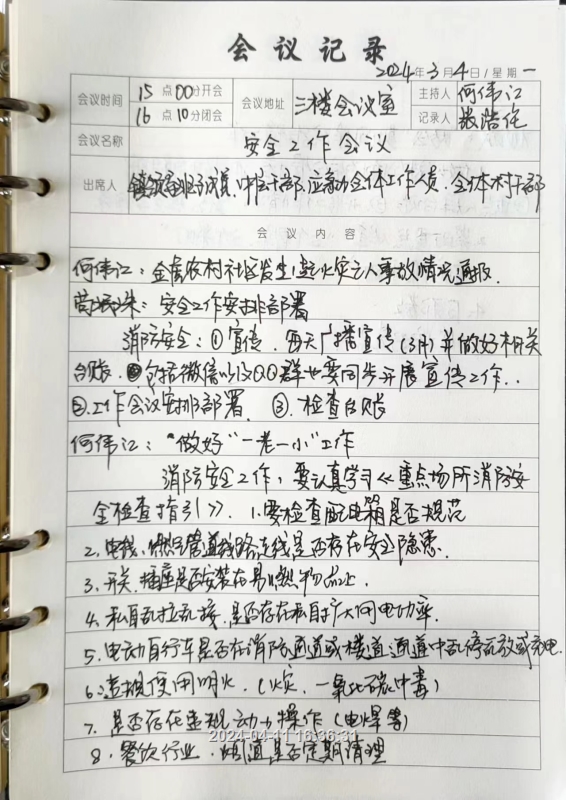 会议记录
2024年3月4日/星期一
会议时间 15点00分开会 16点10分闭会 会议地址 三楼会议室 主持人 何伟江 记录人 张浩
会议名称 安全工作会议
出席人 镇领导班子成员、中层干部、应急办全体工作人员、全体村干部
会议内容
何伟江：金虞农村社区发生1起火灾亡人事故情况通报.
安全工作安排部署
消防安全：①宣传．每天广播宣传(3月)并做好相关
台账．包括微信以及QQ群也要同步开展宣传工作..
②.工作会议安排部署．③.检查台账
何伟江："做好"一老一小"工作
消防安全工作，要认真学习《重点场所消防安
全检查指引》．1.要检查配电箱是否规范
2、电线、燃气管道线路走线是否存在安全隐患.
3、开关、插座是否安装在易燃物品上.
4、私自乱拉乱接，是否存在私自扩大用电功率.
5、电动自行车是否在消防通道或楼道通道中乱停乱放或充电.
6、违规使用明火.(火灾、一氧化碳中毒)
7、是否存在违规动火操作(电焊等)
8、餐饮行业．烟道是否定期清理
2024-04-11 16:36:31